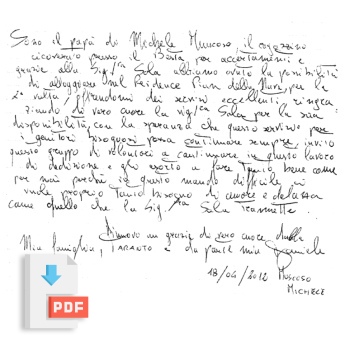 Sono il papà di Michele Muscoso, il ragazzino
ricoverato presso il Besta per accertamenti e
grazie alla Sig.ra Sala abbiamo avuto la possibilità
di alloggiare nel Residence Piura della per la
2ª volta, offrendomi dei servizi eccellenti ringra
ziando di vero cuore la sig.ra Sala per la sua
disponibilità, con la speranza che questo servizio per
i genitori bisognosi possa continuare sempre, invito
questo gruppo di volontari a continuare in questo lavoro
di dedizione e gli esorto a fare tanto bene come
per noi perché in questo mondo difficile ci
vuole proprio tanto bisogno di amore e
come quello che la Sig.ra Sala trasmette.
Rinnovo un grazie di vero cuore dalla
Mia famiglia, TARANTO e da parte mia
18/04/2012 MUSCOSO
MICHELE
PDF